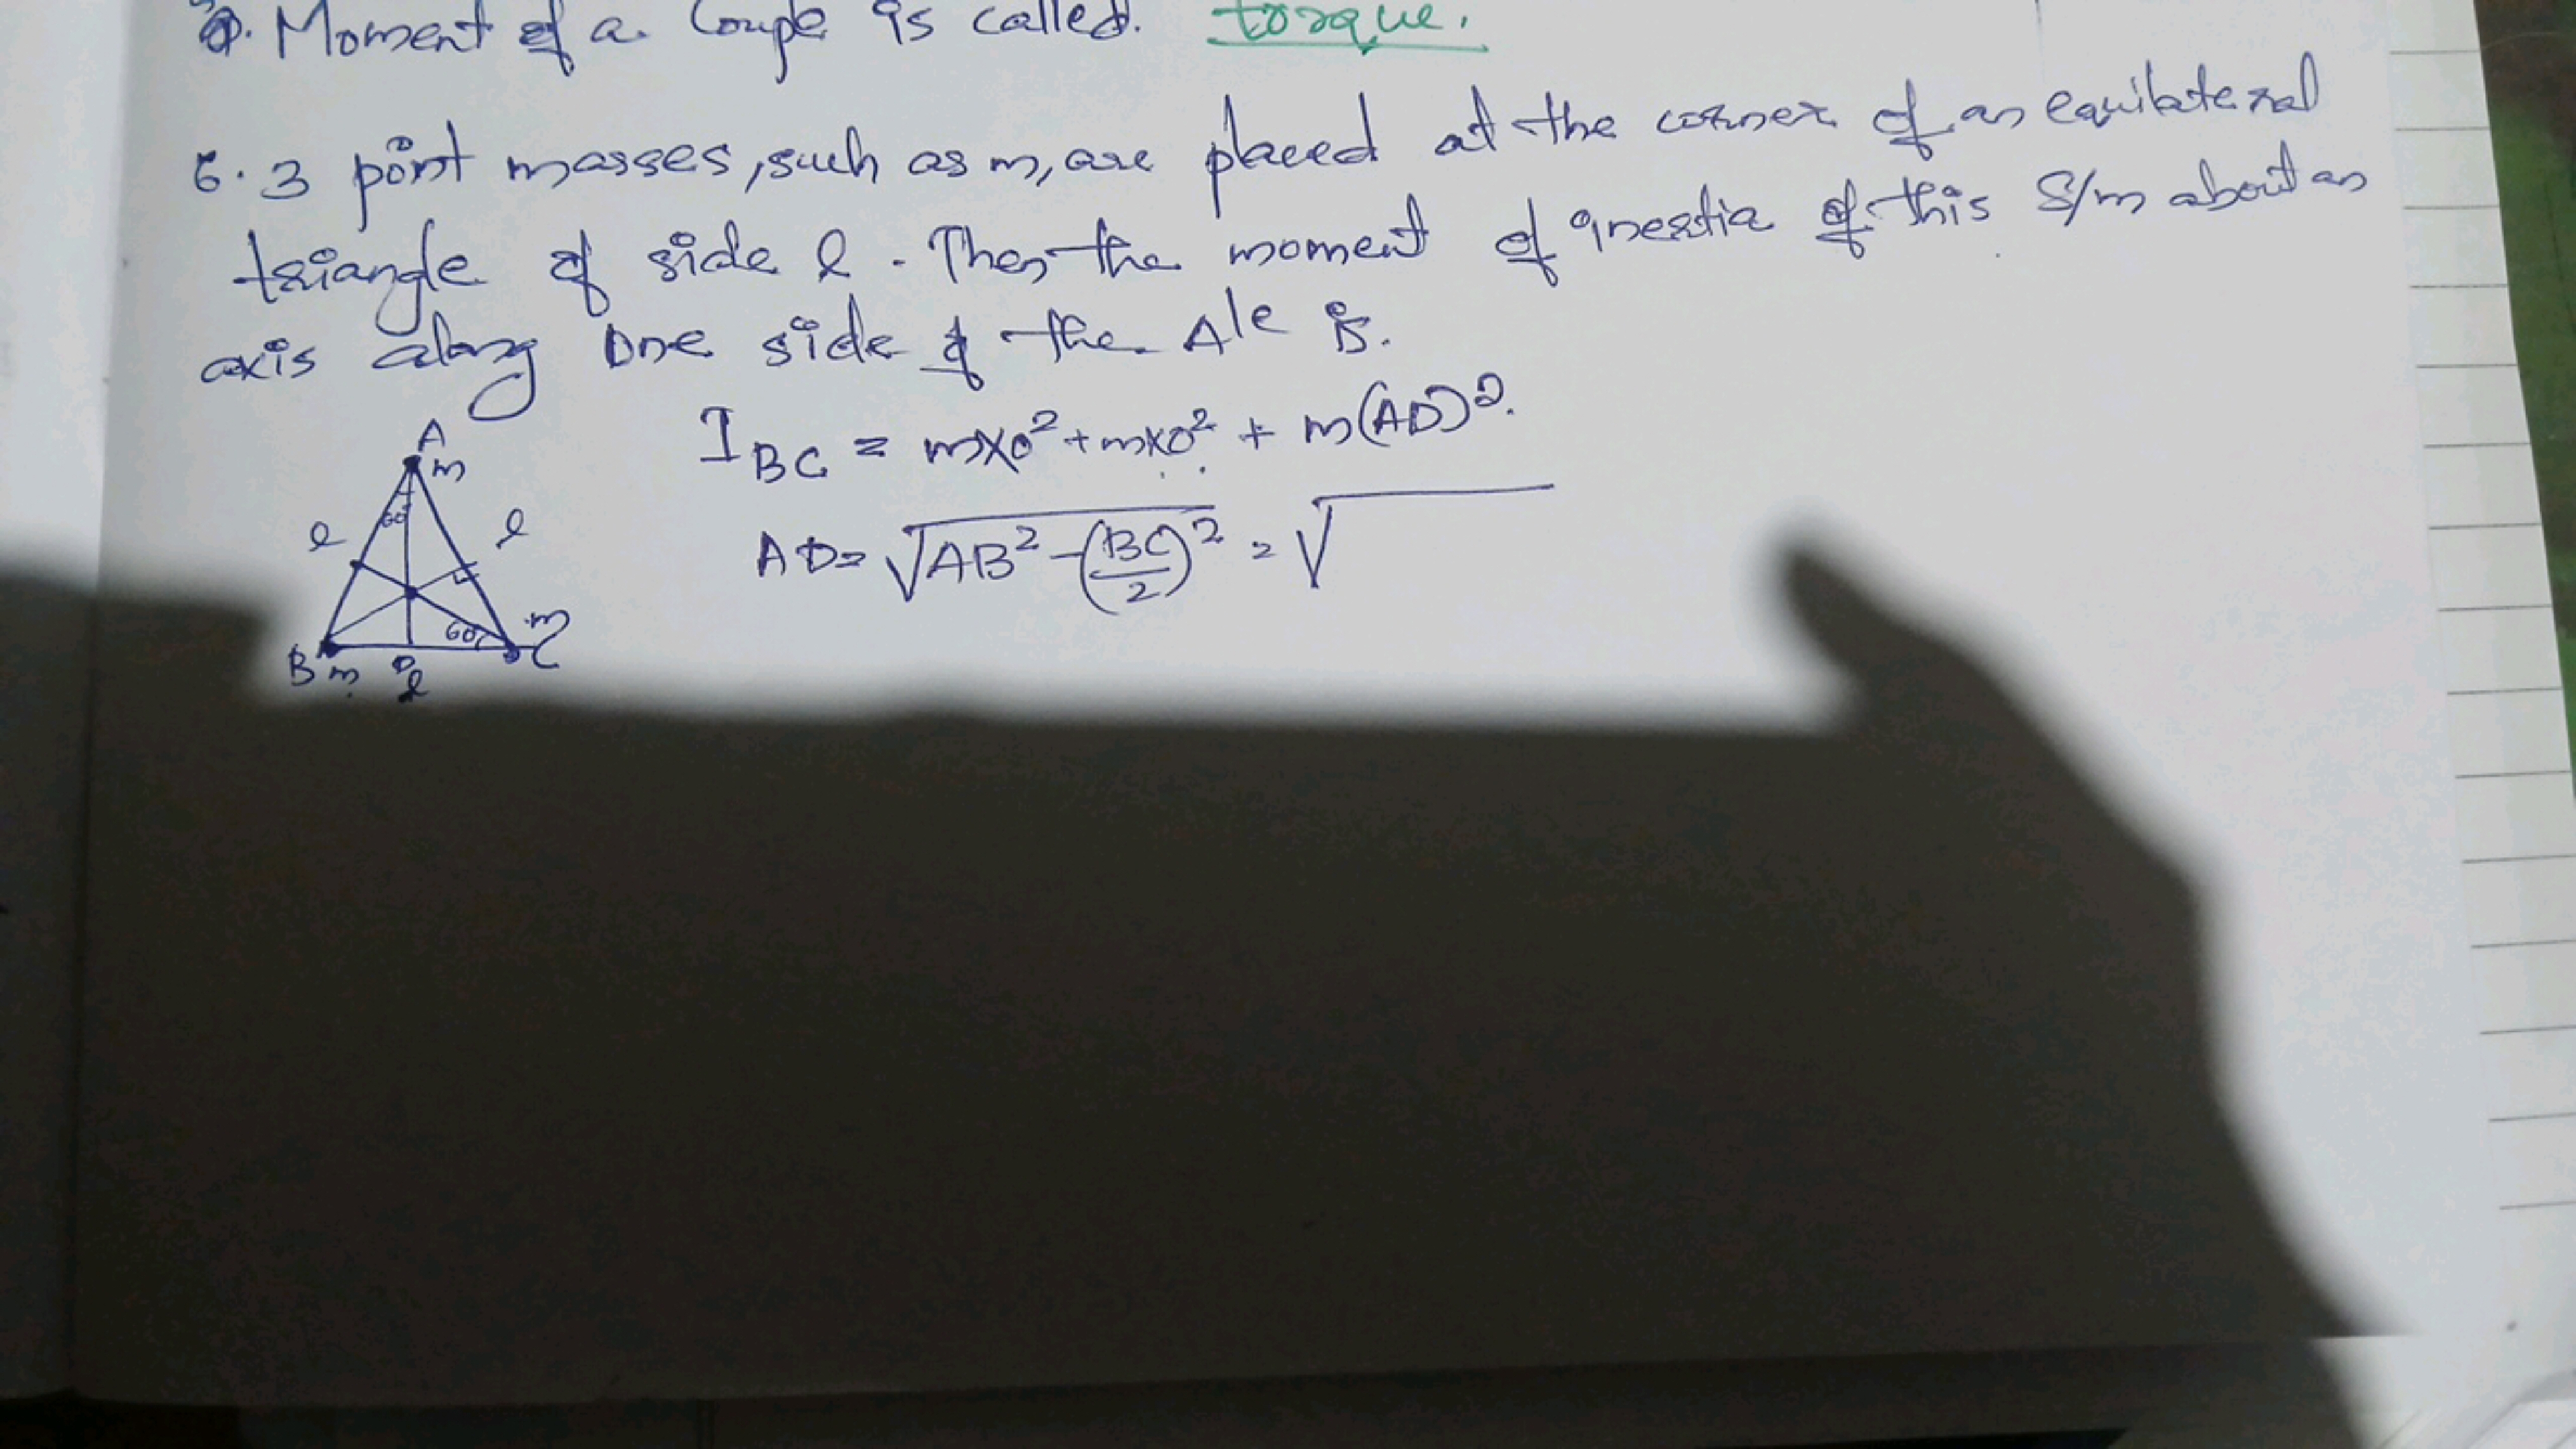 Moment of a Couple is called. torque.
6. 3 point masses, such as m, are placed at the corner of an equilateral
triangle of side l. Then the moment of inertia of this S/m about an
axis along one side of the Δle is.
I_BC = m×0² + m×0² + m(AD)².
AD = √(AB² - (BC/2)²) = √
A
m
60°
l l
60°
B m D m C
l